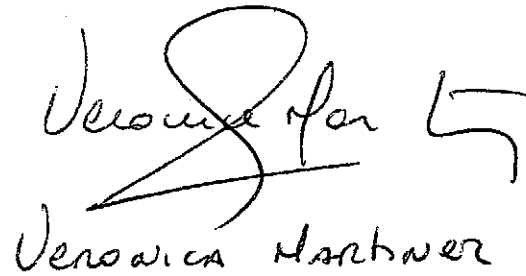 Veronica Mar
VERONICA MARTINEZ